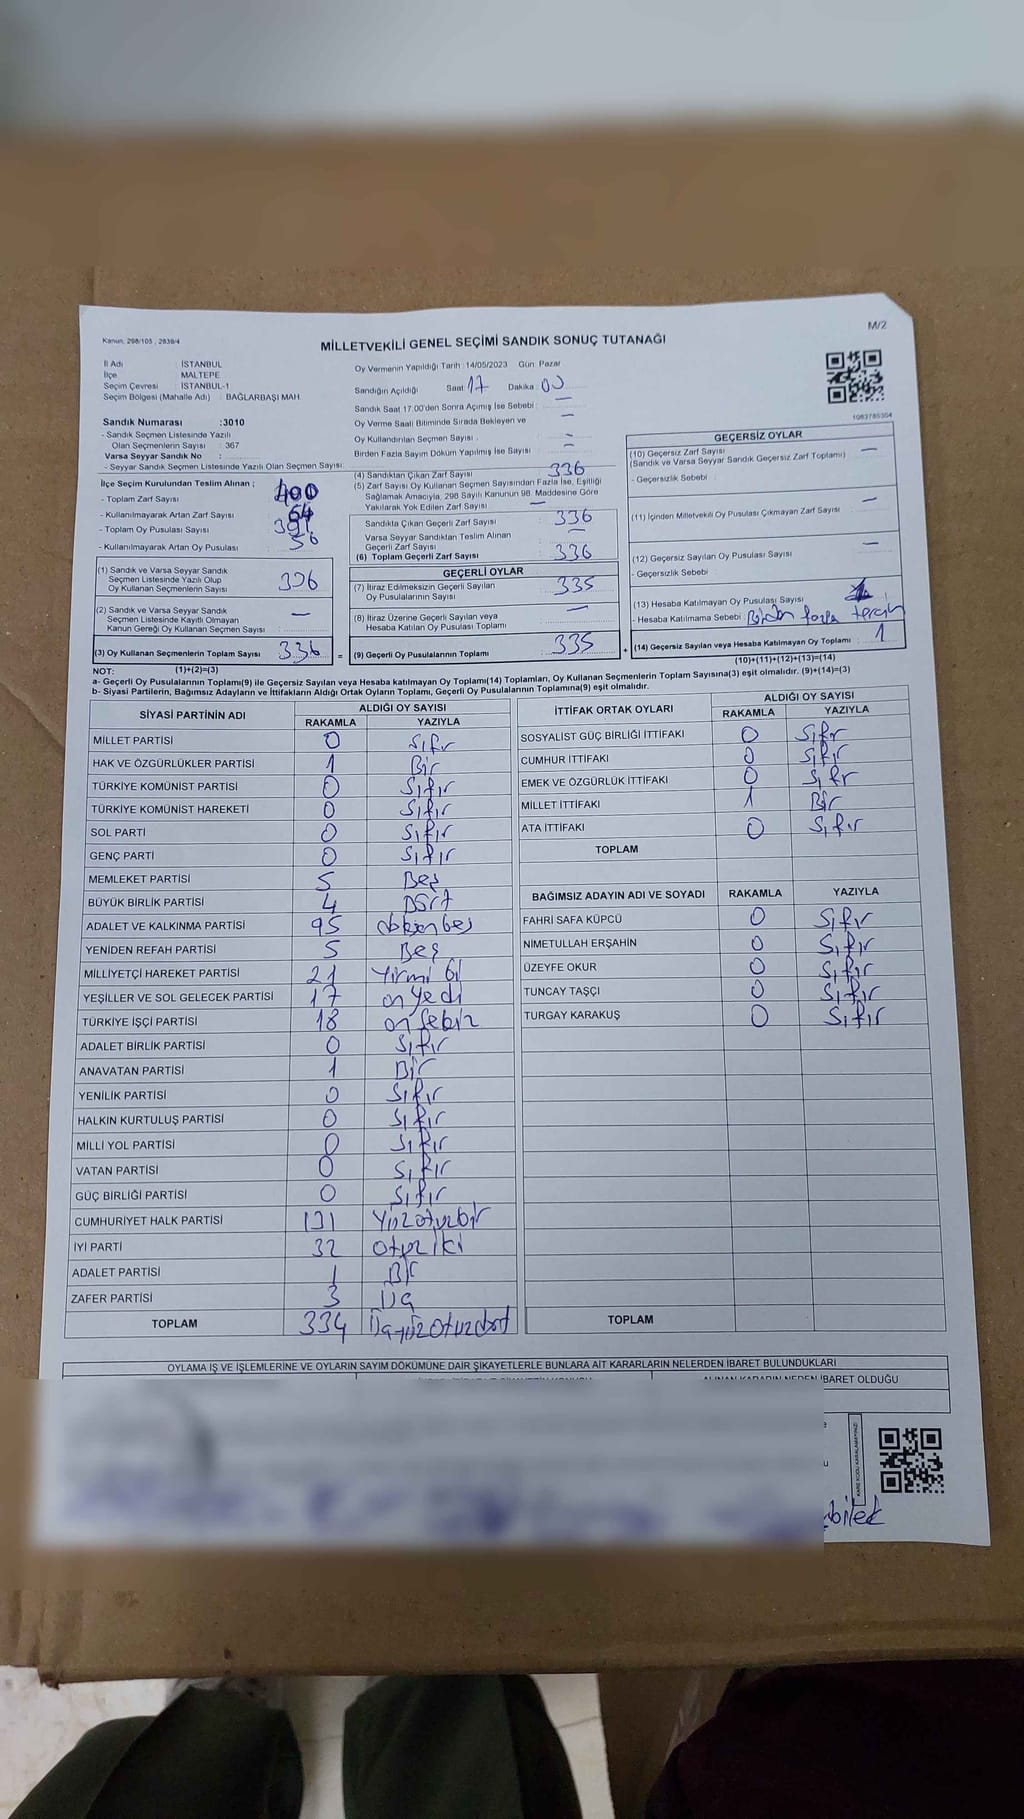 M/2
Kanun: 298/105 , 2839/4
MİLLETVEKİLİ GENEL SEÇİMİ SANDIK SONUÇ TUTANAĞI
İl Adı : İSTANBUL
İlçe : MALTEPE
Seçim Çevresi : İSTANBUL-1
Seçim Bölgesi (Mahalle Adı) : BAĞLARBAŞI MAH
Sandık Numarası :3010
- Sandık Seçmen Listesinde Yazılı
Olan Seçmenlerin Sayısı : 367
Varsa Seyyar Sandık No :
- Seyyar Sandık Seçmen Listesinde Yazılı Olan Seçmen Sayısı:
İlçe Seçim Kurulundan Teslim Alınan ;
- Toplam Zarf Sayısı 400
- Kullanılmayarak Artan Zarf Sayısı 64
- Toplam Oy Pusulası Sayısı
- Kullanılmayarak Artan Oy Pusulası 56
(1) Sandık ve Varsa Seyyar Sandık
Seçmen Listesinde Yazılı Olup
Oy Kullanan Seçmenlerin Sayısı 336
(2) Sandık ve Varsa Seyyar Sandık
Seçmen Listesinde Kayıtlı Olmayan
Kanun Gereği Oy Kullanan Seçmen Sayısı —
(3) Oy Kullanan Seçmenlerin Toplam Sayısı 336 =
(1)+(2)=(3)
Oy Vermenin Yapıldığı Tarih :14/05/2023 Gün: Pazar
Sandığın Açıldığı Saat: 17 Dakika: 00
Sandık Saat 17:00'den Sonra Açılmış İse Sebebi : —
Oy Verme Saati Bitiminde Sırada Bekleyen ve
Oy Kullandırılan Seçmen Sayısı : —
Birden Fazla Sayım Döküm Yapılmış İse Sayısı : —
(4) Sandıktan Çıkan Zarf Sayısı 336
(5) Zarf Sayısı Oy Kullanan Seçmen Sayısından Fazla İse, Eşitliği
Sağlamak Amacıyla, 298 Sayılı Kanunun 98. Maddesine Göre
Yakılarak Yok Edilen Zarf Sayısı —
Sandıkta Çıkan Geçerli Zarf Sayısı 336
Varsa Seyyar Sandıktan Teslim Alınan
Geçerli Zarf Sayısı —
(6) Toplam Geçerli Zarf Sayısı 336
GEÇERLİ OYLAR
(7) İtiraz Edilmeksizin Geçerli Sayılan
Oy Pusulalarının Sayısı 335
(8) İtiraz Üzerine Geçerli Sayılan veya
Hesaba Katılan Oy Pusulası Toplamı —
(9) Geçerli Oy Pusulalarının Toplamı 335 +
1083785304
GEÇERSİZ OYLAR
(10) Geçersiz Zarf Sayısı —
(Sandık ve Varsa Seyyar Sandık Geçersiz Zarf Toplamı)
- Geçersizlik Sebebi :
(11) İçinden Milletvekili Oy Pusulası Çıkmayan Zarf Sayısı —
(12) Geçersiz Sayılan Oy Pusulası Sayısı —
- Geçersizlik Sebebi :
(13) Hesaba Katılmayan Oy Pusulası Sayısı
- Hesaba Katılmama Sebebi : Birden fazla tercih
(14) Geçersiz Sayılan veya Hesaba Katılmayan Oy Toplamı : 1
(10)+(11)+(12)+(13)=(14)
NOT:
a- Geçerli Oy Pusulalarının Toplamı(9) ile Geçersiz Sayılan veya Hesaba katılmayan Oy Toplamı(14) Toplamları, Oy Kullanan Seçmenlerin Toplam Sayısına(3) eşit olmalıdır. (9)+(14)=(3)
b- Siyasi Partilerin, Bağımsız Adayların ve İttifakların Aldığı Ortak Oyların Toplamı, Geçerli Oy Pusulalarının Toplamına(9) eşit olmalıdır.
SİYASİ PARTİNİN ADI ALDIĞI OY SAYISI
RAKAMLA YAZIYLA
MİLLET PARTİSİ 0 Sıfır
HAK VE ÖZGÜRLÜKLER PARTİSİ 1 Bir
TÜRKİYE KOMÜNİST PARTİSİ 0 Sıfır
TÜRKİYE KOMÜNİST HAREKETİ 0 Sıfır
SOL PARTİ 0 Sıfır
GENÇ PARTİ 0 Sıfır
MEMLEKET PARTİSİ 5 Beş
BÜYÜK BİRLİK PARTİSİ 4 Dört
ADALET VE KALKINMA PARTİSİ 95 doksanbeş
YENİDEN REFAH PARTİSİ 5 Beş
MİLLİYETÇİ HAREKET PARTİSİ 21 Yirmi bir
YEŞİLLER VE SOL GELECEK PARTİSİ 17 on yedi
TÜRKİYE İŞÇİ PARTİSİ 18 on sekiz
ADALET BİRLİK PARTİSİ 0 Sıfır
ANAVATAN PARTİSİ 1 Bir
YENİLİK PARTİSİ 0 Sıfır
HALKIN KURTULUŞ PARTİSİ 0 Sıfır
MİLLİ YOL PARTİSİ 0 Sıfır
VATAN PARTİSİ 0 Sıfır
GÜÇ BİRLİĞİ PARTİSİ 0 Sıfır
CUMHURİYET HALK PARTİSİ 131 Yüzotuzbir
İYİ PARTİ 32 otuziki
ADALET PARTİSİ 1 Bir
ZAFER PARTİSİ 3 Üç
TOPLAM 334 Üçyüzotuzdört
İTTİFAK ORTAK OYLARI ALDIĞI OY SAYISI
RAKAMLA YAZIYLA
SOSYALİST GÜÇ BİRLİĞİ İTTİFAKI 0 Sıfır
CUMHUR İTTİFAKI 0 Sıfır
EMEK VE ÖZGÜRLÜK İTTİFAKI 0 Sıfır
MİLLET İTTİFAKI 1 Bir
ATA İTTİFAKI 0 Sıfır
TOPLAM
BAĞIMSIZ ADAYIN ADI VE SOYADI RAKAMLA YAZIYLA
FAHRİ SAFA KÜPCÜ 0 Sıfır
NİMETULLAH ERŞAHİN 0 Sıfır
ÜZEYFE OKUR 0 Sıfır
TUNCAY TAŞÇI 0 Sıfır
TURGAY KARAKUŞ 0 Sıfır
TOPLAM
OYLAMA İŞ VE İŞLEMLERİNE VE OYLARIN SAYIM DÖKÜMÜNE DAİR ŞİKAYETLERLE BUNLARA AİT KARARLARIN NELERDEN İBARET BULUNDUKLARI
ALINAN KARARIN NEDEN İBARET OLDUĞU
KARE KODU KARALAMAYINIZ!